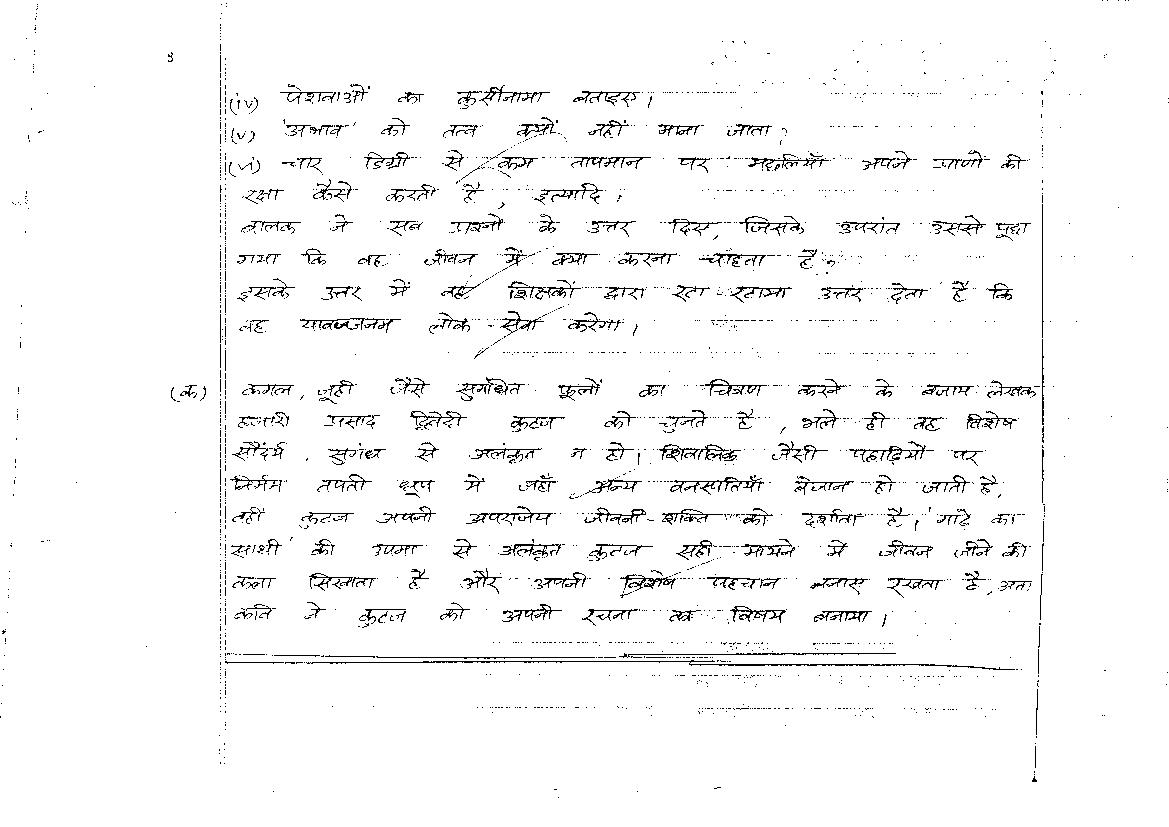 8
(iv) पेशवाओं का कुर्सीनामा बताइए।
(v) 'अभाव' को तत्व क्यों नहीं माना जाता?
(vi) चार डिग्री से कम तापमान पर मछलियाँ अपने प्राणों की
रक्षा कैसे करती है, इत्यादि।
बालक ने सब प्रश्नों के उत्तर दिए, जिसके उपरांत उससे पूछा
गया कि वह जीवन में क्या करना चाहता है?
इसके उत्तर में वह शिक्षकों द्वारा रटा-रटाया उत्तर देता है कि
वह यावज्जनम लोक-सेवा करेगा।
(क) कमल, जूही जैसे सुगंधित फूलों का चित्रण करने के बजाय लेखक
हजारी प्रसाद द्विवेदी कुटज को चुनते है, भले ही वह विशेष
सौंदर्य, सुगंध से अलंकृत न हो। शिवालिक जैसी पहाड़ियों पर
निर्मम तपती धूप में जहाँ अन्य वनस्पतियाँ बेजान हो जाती है,
वहीं कुटज अपनी अपराजेय जीवनी-शक्ति को दर्शाता है। 'गाढ़े का
साथी' की उपमा से अलंकृत कुटज सही मायने में जीवन जीने की
कला सिखाता है और अपनी विशेष पहचान बनाए रखता है, अतः
कवि ने कुटज को अपनी रचना का विषय बनाया।